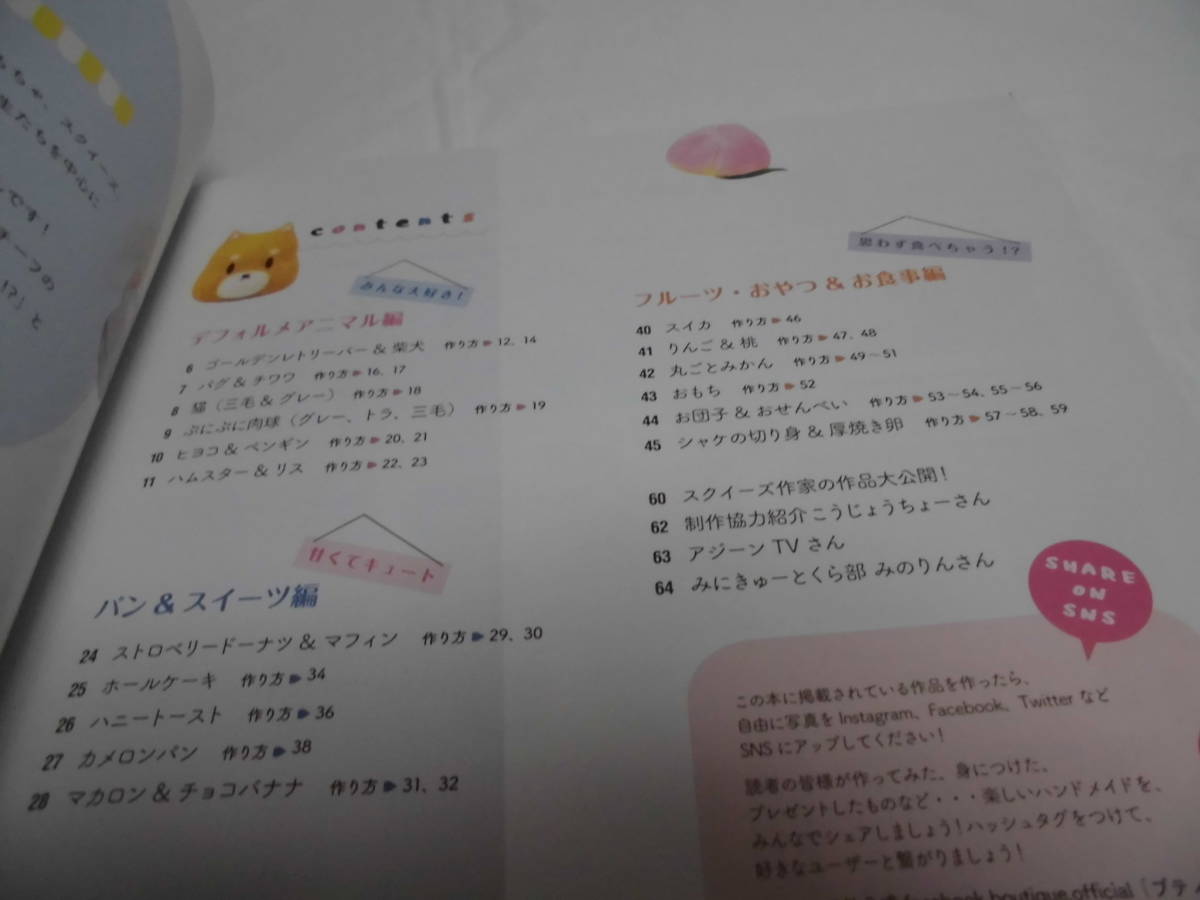 スクイーズ、
を中心に
です!
チーフの
!?」と
contents
みんな大好き!
デフォルメアニマル編
6 ゴールデンレトリーバー & 柴犬 作り方 12、14
7 パグ & チワワ 作り方 16、17
8 猫(三毛 & グレー) 作り方 18
9 ぷにぷに肉球(グレー、トラ、三毛) 作り方 19
10 ヒヨコ & ペンギン 作り方 20、21
11 ハムスター & リス 作り方 22、23
甘くてキュート
パン & スイーツ編
24 ストロベリードーナツ & マフィン 作り方 29、30
25 ホールケーキ 作り方 34
26 ハニートースト 作り方 36
27 カメロンパン 作り方 38
28 マカロン & チョコバナナ 作り方 31、32
思わず食べちゃう!?
フルーツ・おやつ & お食事編
40 スイカ 作り方 46
41 りんご & 桃 作り方 47、48
42 丸ごとみかん 作り方 49〜51
43 おもち 作り方 52
44 お団子 & おせんべい 作り方 53〜54、55〜56
45 シャケの切り身 & 厚焼き卵 作り方 57〜58、59
60 スクイーズ作家の作品大公開!
62 制作協力紹介 こうじょうちょーさん
63 アジーン TV さん
64 みにきゅーとくら部 みのりんさん
SHARE
ON
SNS
この本に掲載されている作品を作ったら、
自由に写真を Instagram、Facebook、Twitter など
SNS にアップしてください!
読者の皆様が作ってみた、身につけた、
プレゼントしたものなど・・・楽しいハンドメイドを、
みんなでシェアしましょう!ハッシュタグをつけて、
好きなユーザーと繋がりましょう!
boutique official「ブティ